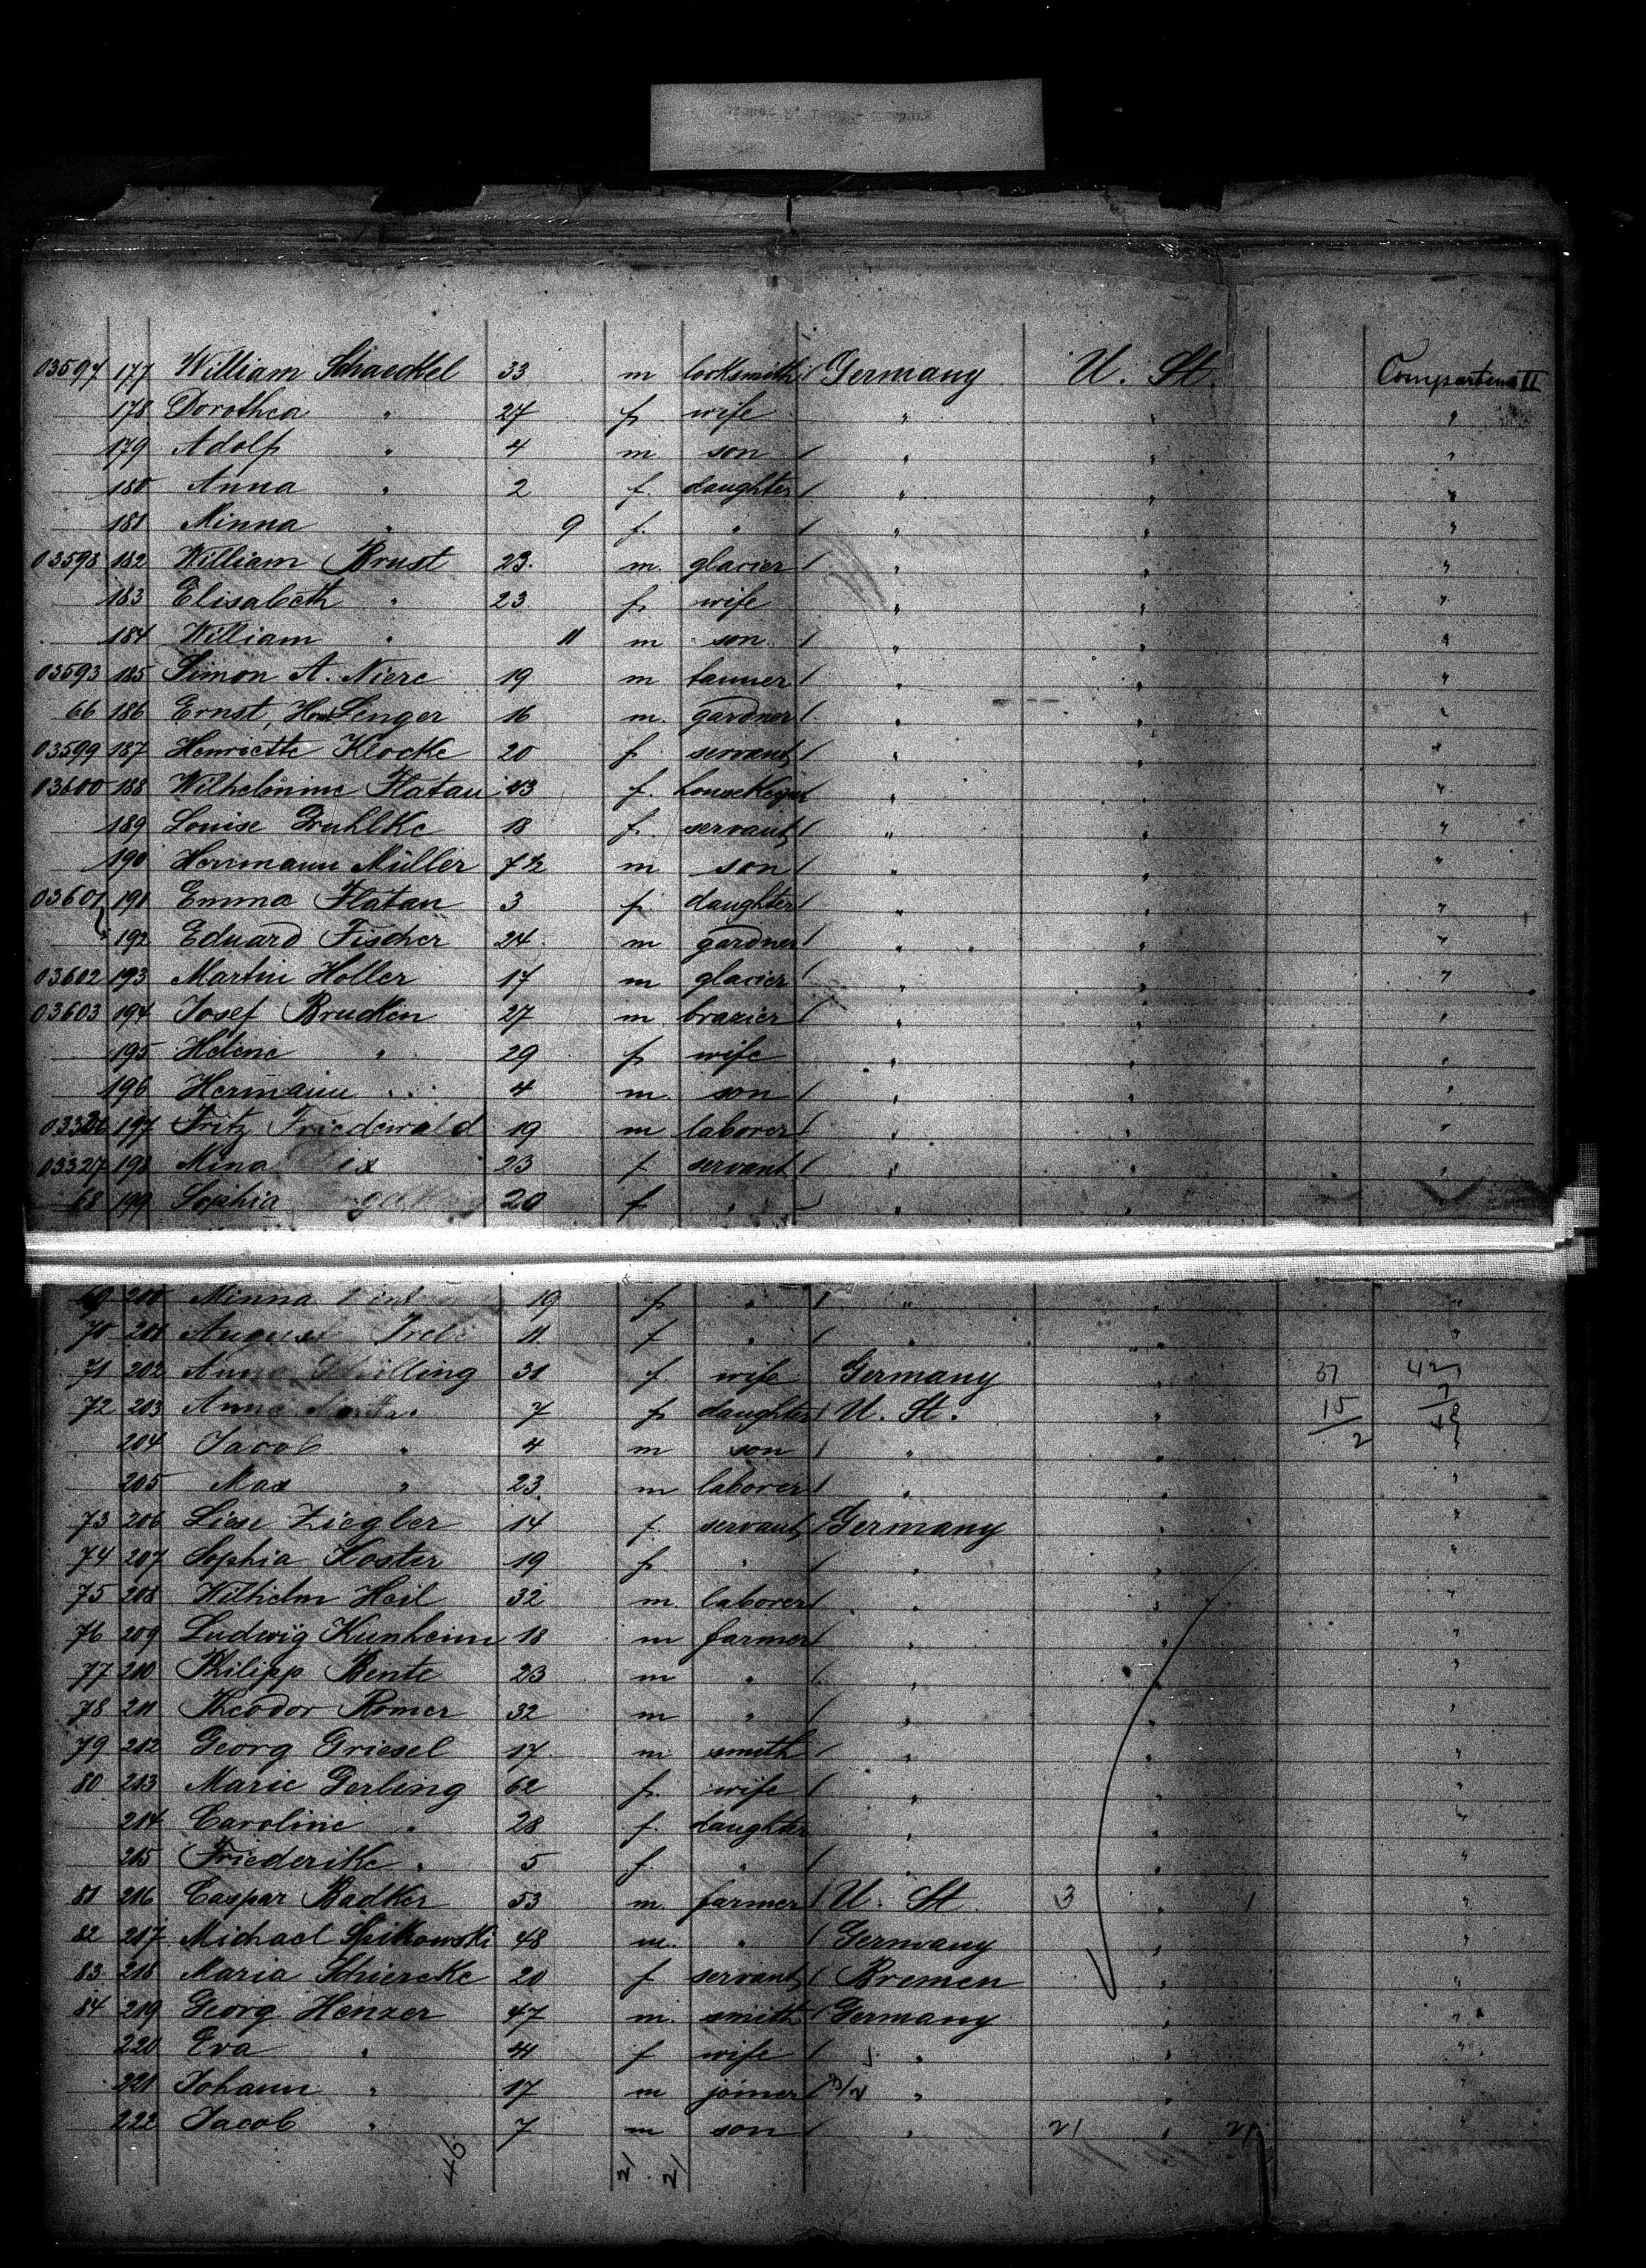 03597 177 William Schaeckel 33 m locksmith Germany U. St. Compartem II
178 Dorothea " 27 f wife " " "
179 Adolf " 4 m son " " "
180 Anna " 2 f. daughter " " "
181 Minna " 9 f. " " " "
03598 182 William Brust 23. m. glacier " " "
183 Elisabeth " 23 f wife " " "
184 William " 11 m son " " "
03593 185 Simon A. Niere 19 m tanner " " "
66 186 Ernst, Senger 16 m. gardner " " "
03599 187 Henriette Klocke 20 f servant " " "
03600 188 Wilhelmine Flatau 43 f. " " "
189 Louise 18 f. servant " " "
190 Herrmann Müller 7½ m son " " "
03601 191 Emma Flatau 3 f daughter " " "
192 Eduard Fischer 24. m gardner " " "
03602 193 Martin Holler 17 m glacier " " "
03603 194 Josef Brucken 27 m brazier " " "
195 Helene " 29 f wife " " "
196 Hermann " 4 m. son " " "
197 Fritz Friedewald 19 m laborer " " "
03327 198 Mina 23 f servant " " "
68 199 Sophia 20 f " "
69 200 Minna 19 f " " " "
70 201 August 11 f " " " "
71 202 31 f. wife Germany " 42
72 203 Anna 7 f daughter U. St. " 15
204 Jacob " 4 m son " " 2 "
205 Max " 23 m laborer " " "
73 206 Liese Ziegler 14 f. servant Germany " "
74 207 Sophia Koster 19 f " " " "
75 208 Wilhelm Heil 32 m. laborer " " "
76 209 Ludwig Kunheim 18 m farmer " " "
77 210 Philipp Bente 23 m " " " "
78 211 Theodor Romer 32 m " " " "
79 212 Georg Griesel 17 m smith " " "
80 213 Marie Gerling 62 f. wife " " "
214 Caroline " 28 f. daughter " " "
215 Friederike " 5 f. " " " "
81 216 Caspar Badker 53 m. farmer U. St. 3 " 1 "
82 217 Michael Spikowski 48 m. " Germany " "
83 218 Maria Schiercke 20 f servant Bremen " "
84 219 Georg Henzer 47 m. smith Germany " "
220 Eva " 41 f wife " " "
221 Johann " 17 m joiner " " "
222 Jacob " 7 m son " 21 " 21 "
46 21 21